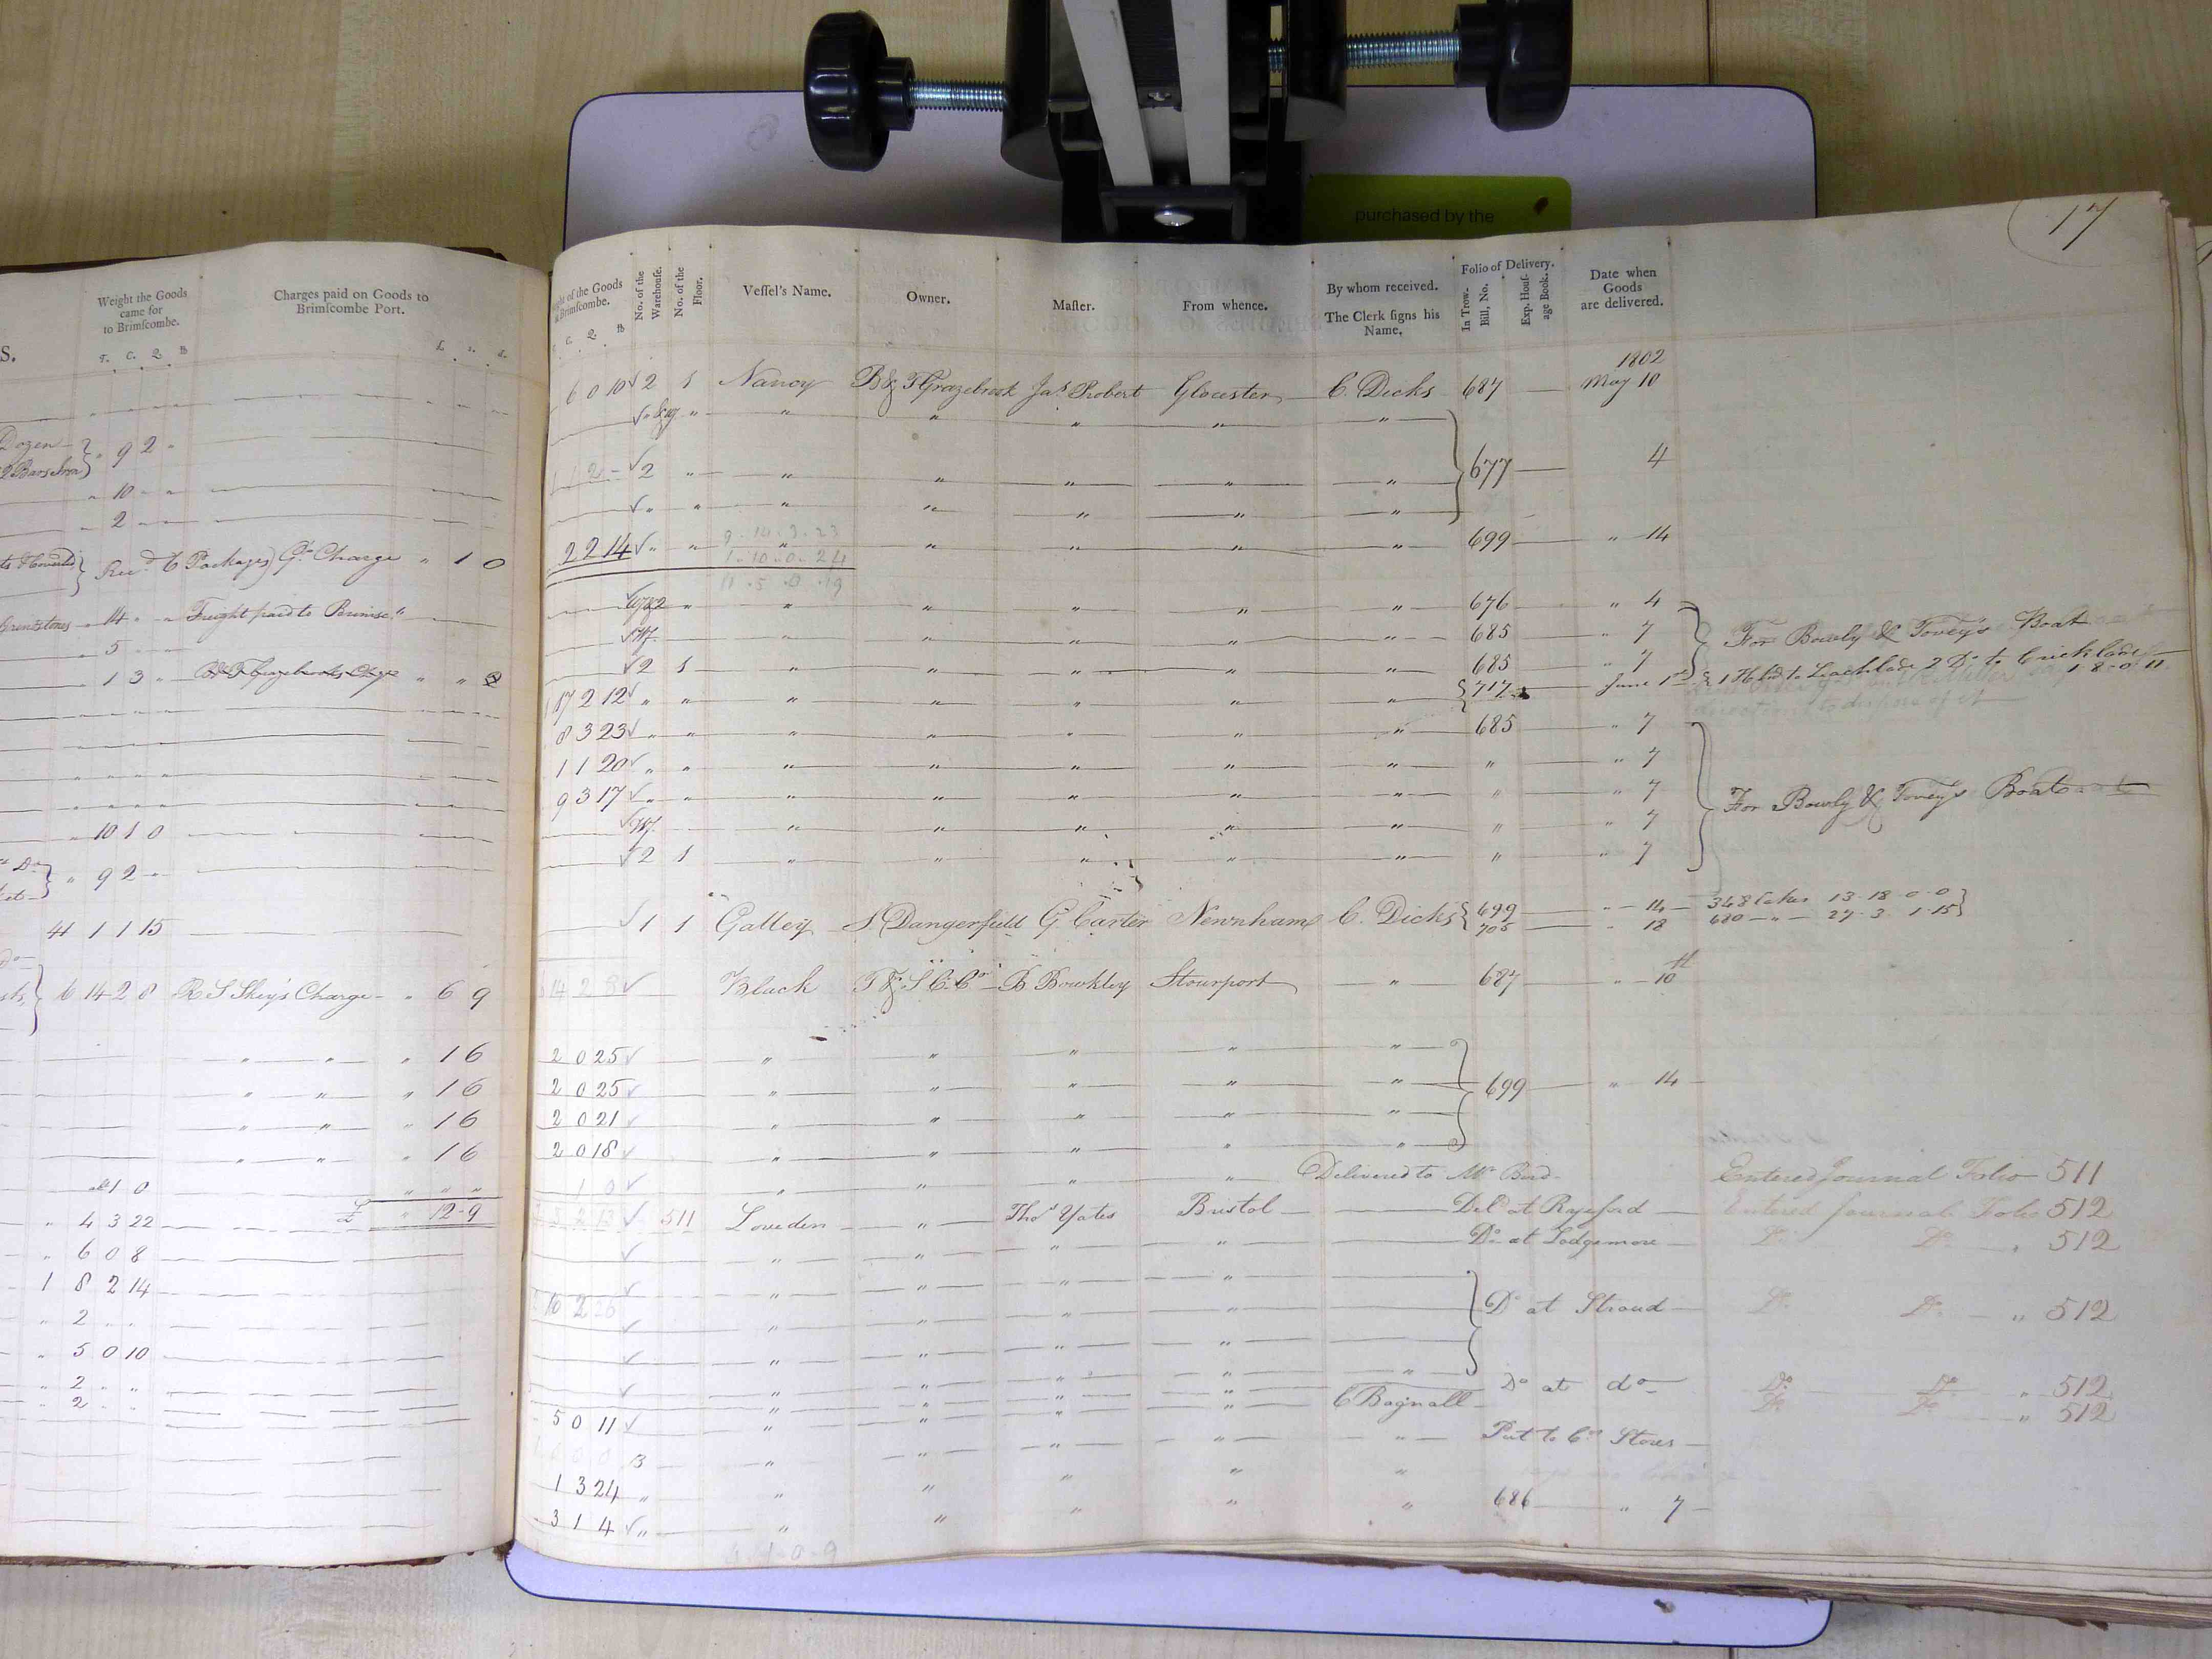 purchased by the
17
S.
Weight the Goods
came for
to Brimſcombe.
T. C. Q. lb
Charges paid on Goods to
Brimſcombe Port.
£. s. d.
Dozen
" 9 2 "
" 10 " "
" 2 " "
6 Packages) Charge " 1 0
Grindstones " 14 " " Freight paid to Brimsc.
" 5
1 3 "
" 10 1 0
" 9 2 "
41 1 1 15
6 14 2 8 R S Skey's Charge " 6 9
" " " 1 6
" " " 1 6
" " " 1 6
" " " 1 6
1 0 " " "
" 4 3 22 £ " 12-9
" 6 0 8
1 8 2 14
" 2 " "
" 5 0 10
" 2 " "
" 2 " "
of the Goods
Brimſcombe.
C. Q. lb
No. of the
Warehouſe.
No. of the
Floor.
Veſſel's Name.
Owner.
Maſter.
From whence.
By whom received.
The Clerk ſigns his
Name.
Folio of Delivery.
In Trow-
Bill, No.
Exp. Houſ-
age Book.
Date when
Goods
are delivered.
1802
6 0 10 ✓ 2 1 Nancy B & T Grazebrook Jas Probert Glocester C. Dicks 687 May 10
" " " " " "
1 2 - ✓ 2 " " " " " " 677 4
✓ " " " " " " "
9.14.3.23
2 2 14 ✓ " " " " " " " 699 " 14
1.10.0.24
11.5.0.19
" " " " " " 676 " 4
" " " " " 685 " 7
For Bowly & Tovey's Boat
✓ 2 1 " " " " " 685 " 7
1 Hhd to Leachlade 2 Do to Cricklade
1-8-0-11
17 2 12 ✓ " " " " " " " 717 June 1st
8 3 23 ✓ " " " " " " " 685 " 7
1 1 20 ✓ " " " " " " " " " 7
9 3 17 ✓ " " " " " " " " " 7
For Bowly & Tovey's Boat
" " " " " " " 7
✓ 2 1 " " " " " " " 7
✓ 1 1 Galley S. Dangerfield G. Carter Newnham C. Dicks 699 " 14 348 Cakes 13-18-0-0
705 " 18 680 " 27-3-1-15
14 2 8 ✓ Black T & S C. Co B Bowkley Stourport " 687 " 10th
2 0 25 ✓ " " " " "
2 0 25 ✓ " " " " " 699 " 14
2 0 21 ✓ " " " " "
2 0 18 ✓ " " " " "
1 0 ✓ " " " " Delivered to Mr Bird Entered Journal Folio 511
5 2 13 ✓ 511 Loveden " Thos Yates Bristol Deld at Ryeford Entered Journal Folio 512
✓ " " " " Do at Lodgemore Do Do " 512
✓ " " " "
10 2 26 " " " " Do at Stroud Do Do " 512
✓
✓ " " " "
✓ " " " " " Do at do Do Do " 512
" " " " C Bagnall Do Do " 512
5 0 11 ✓ " " " "
" " " " " Put to Co Stores
1 3 24 " " " " " "
3 1 4 ✓ " " " " " " 686 " 7